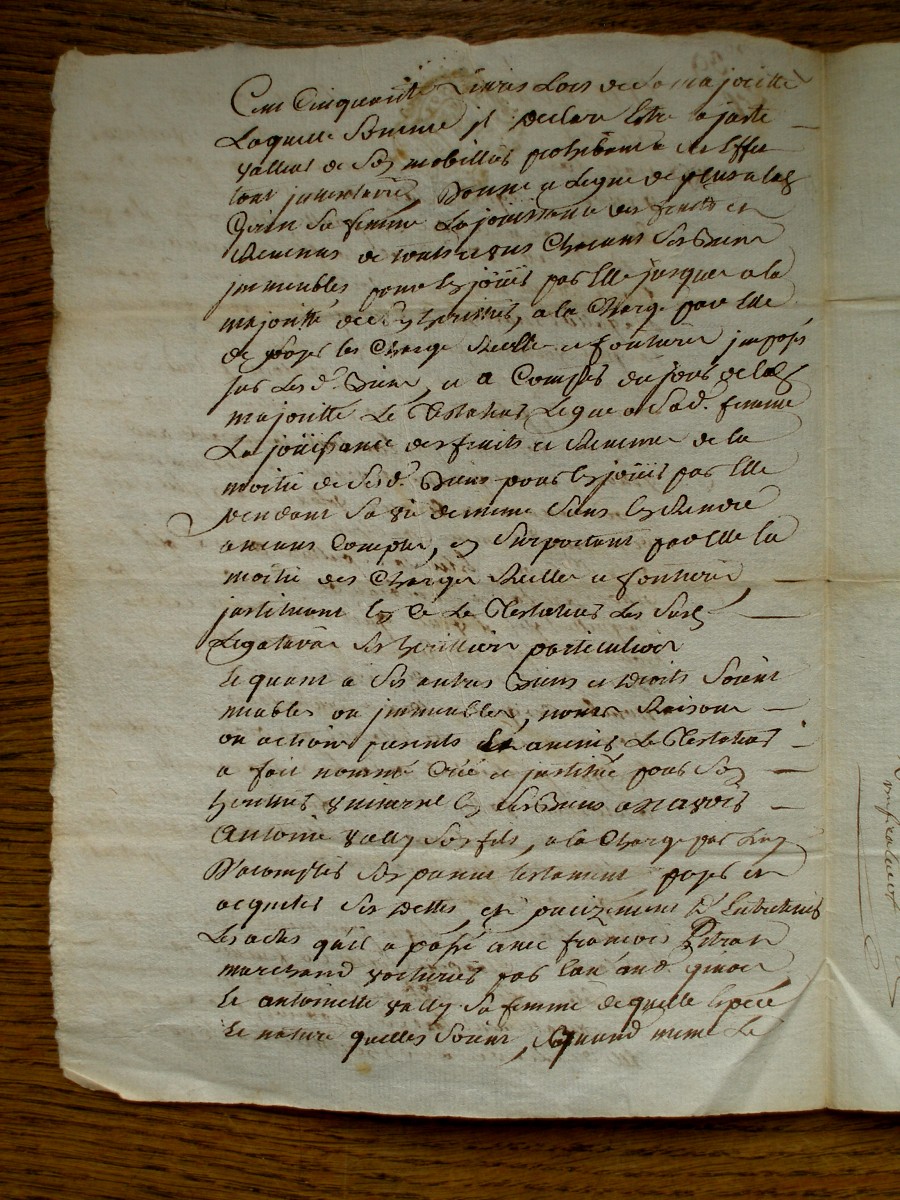 Cent Cinquante livres Lors de sa majoritte
Laquelle Somme jl declare Estre a juste
valleur de Ses mobillies prohibant Effec
tant jnventaire, Donne et Legue de plus a lad
sa femme La jouissance des fruits et
Revenus de tous et uns Chacuns Ses Biens
jmmeubles pour En joüir par Elle jusques a la
majoritté de Son herittier, a la Charge par Elle
de payer les Charges Reelles et fontieres jmposés
sur Lesd. Biens, et a Compter du jour de lad
majoritte Le Testateur Legue a Sad. femme
La joüissance des fruits et Revenus de la
moitié de Sesd. Biens pour En joüir par Elle
pendant Sa vie de meme Sans En Rendre
aucuns Comptes, En Surportant par Elle la
moitié des Charges Reelles et fontieres
jnstituant En Ce Le Testateur Les Susd
Legataires Ses herittiers particuliers
Et quant a Ses autres Biens et Droits Soient
meubles ou jmmeubles, noms Raisons
ou actions presents Et avenir Le Testateur
a fait nommé Créé et jnstitué pour Son
herittier universel En Ses Biens a Sçavoir
Antoine vally Son fils, a la Charge par Luy
D'acomplir Son present testament payer et
acquiter Ses Dettes, et precizement D'Entretenir
Les actes qu'il a passé avec françois
marchand voiturier par
Et antoinette vally Sa femme de quelle Espece
Et nature quelles Soient, Quand meme Le